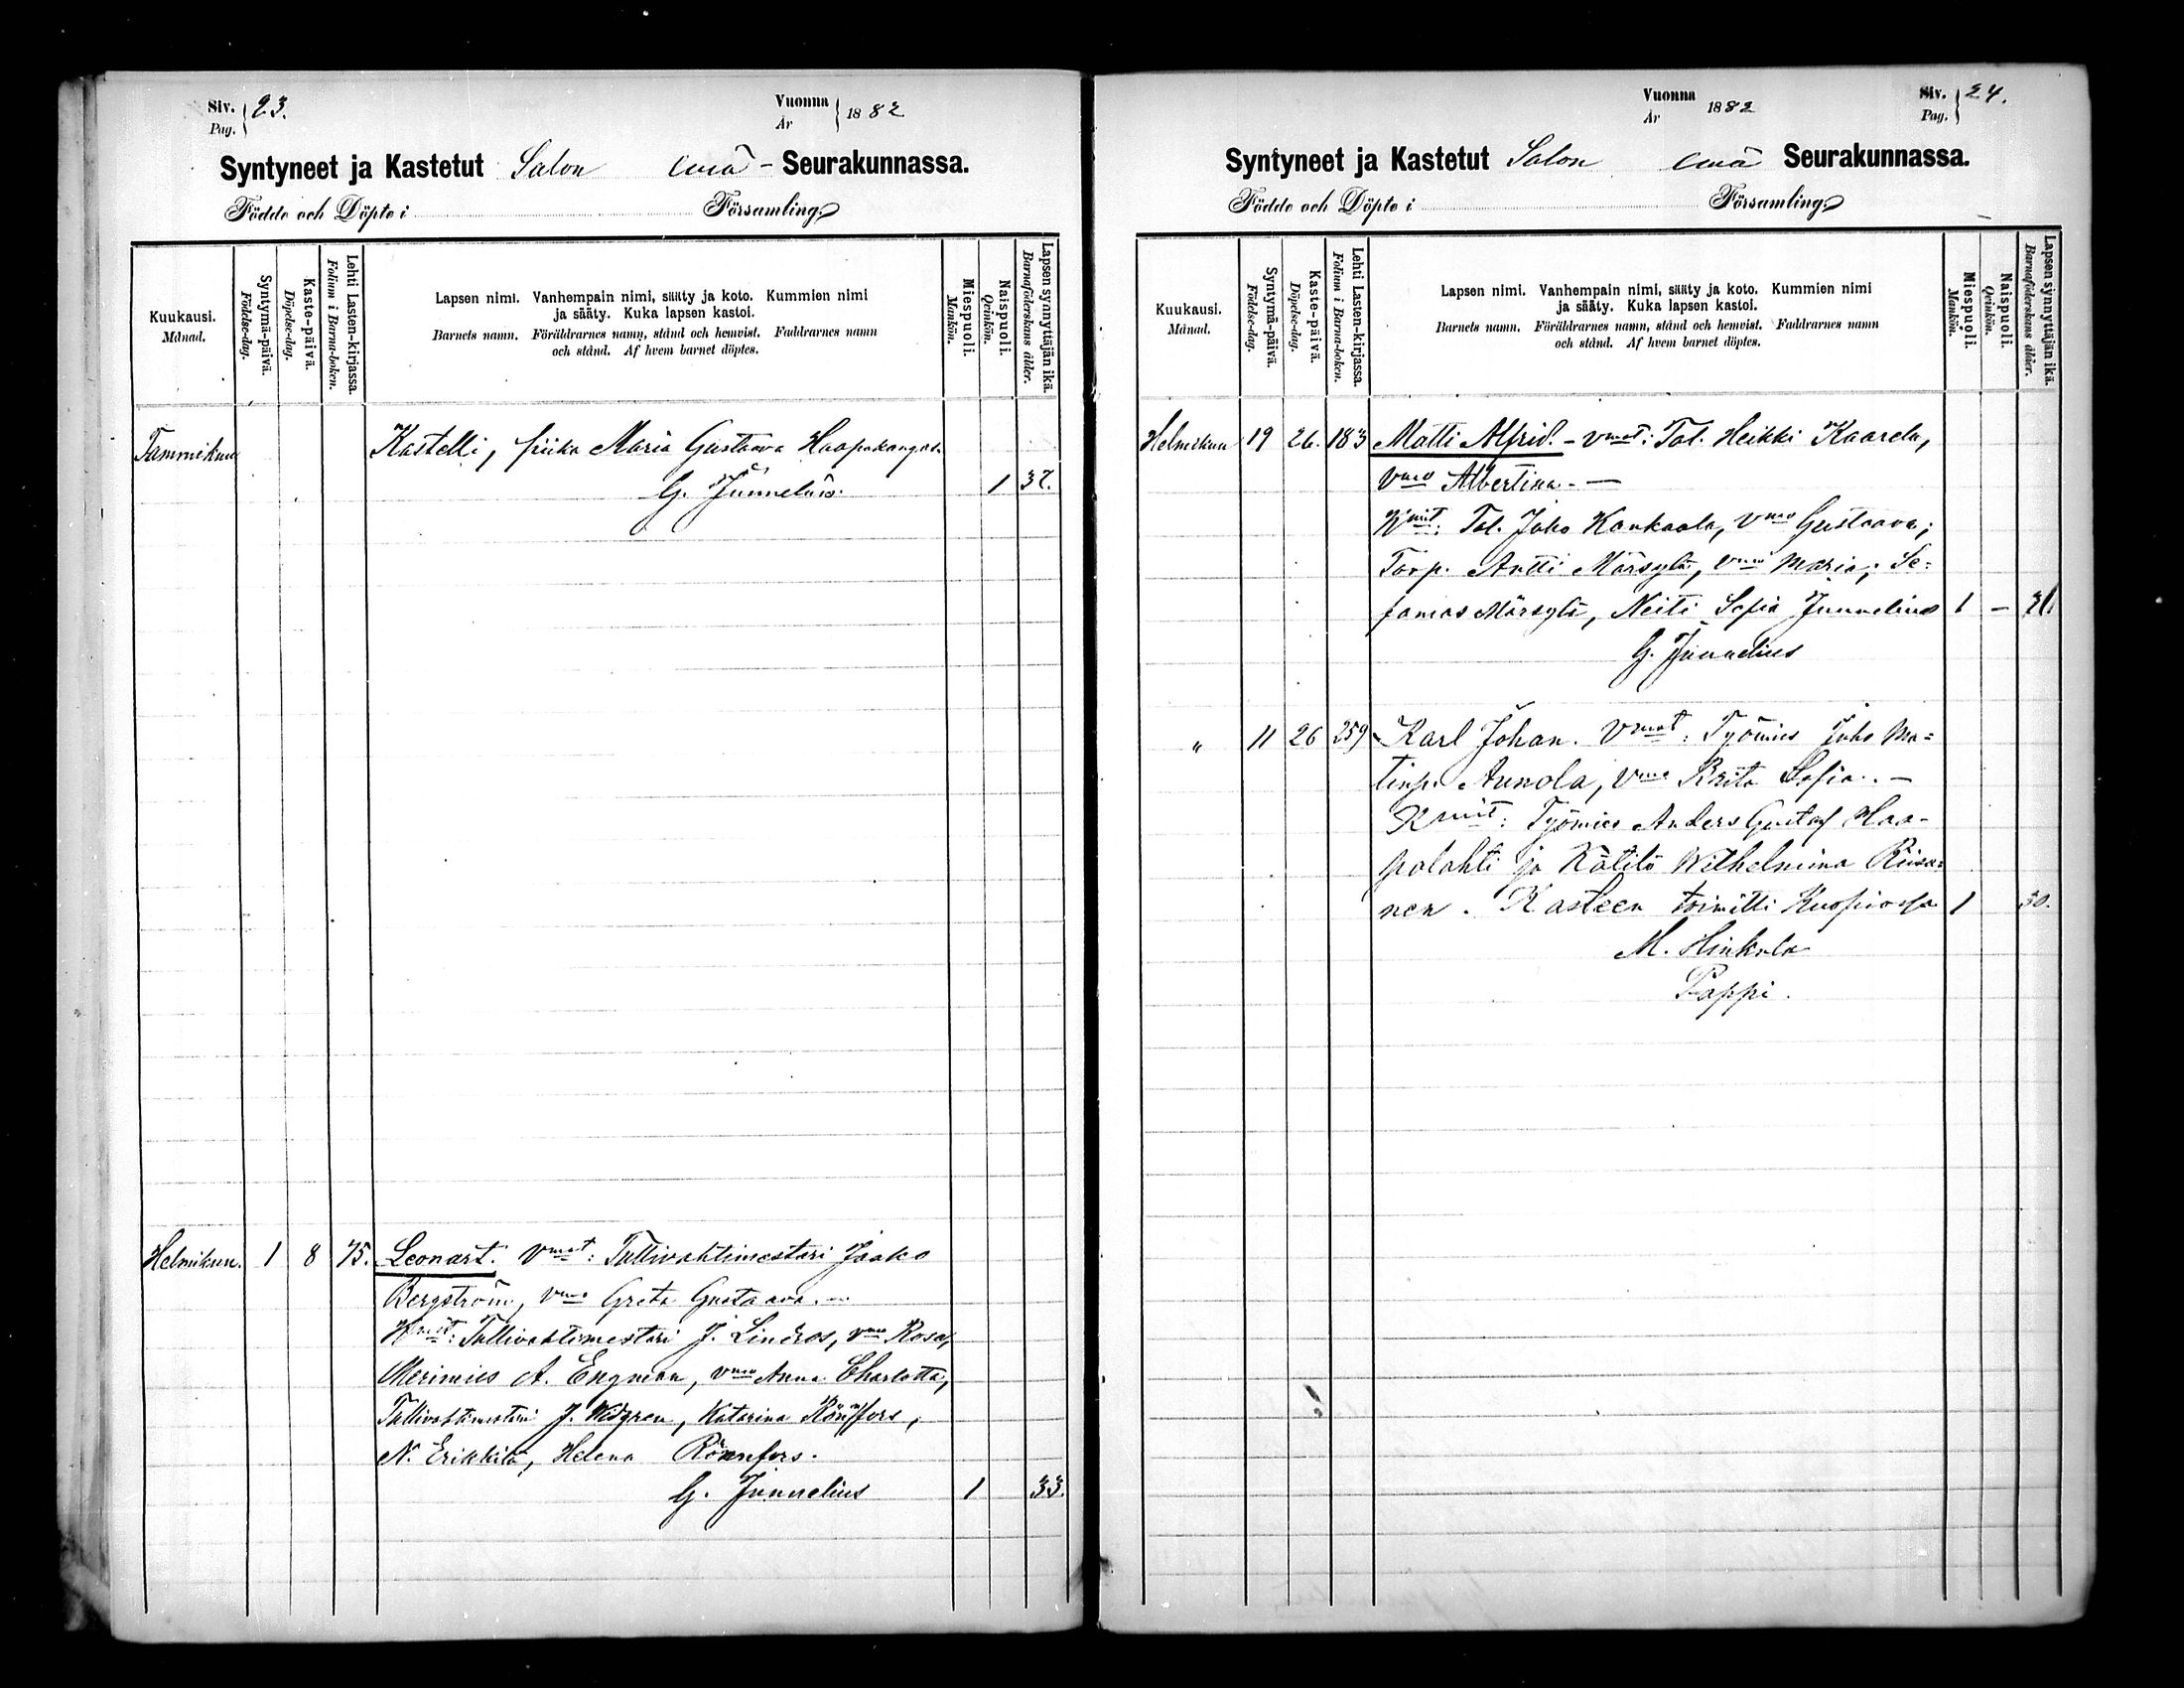 Siv. Pag. 23.
Vuonna År 1882
Syntyneet ja Kastetut Salon emä- Seurakunnassa.
Födde och Döpte i Församling.
Kuukausi. Månad.
Syntymä-päivä. Födelse-dag.
Kaste-päivä. Döpelse-dag.
Lehti Lasten-kirjassa. Folium i Barna-boken.
Lapsen nimi. Vanhempain nimi, sääty ja koto. Kummien nimi
ja sääty. Kuka lapsen kastoi.
Barnets namn. Föräldrarnes namn, stånd och hemvist. Faddrarnes namn
och stånd. Af hvem barnet döptes.
Miespuoli. Mankön.
Naispuoli. Qvinkön.
Lapsen synnyttäjän ikä. Barnaföderskans ålder.
Tammikuu Kastelli, piika Maria Gustaava Haapakangas.
G. Junnelius. 1 37.
Helmikuu. 1 8 75. Leonart. Vmat: Tullivahtimestari Jaako
Bergström, vmo Greta Gustaava. —
Kmit: Tullivahtimestari J. Lindros, vmo Rosa,
Merimies A. Engman, vmo Anna Charlotta,
Tullivahtimestari J. Widgren, Katarina Rönnfors,
N. Erikkilä, Helena Rönnfors.
G. Junnelius 1 33.
Vuonna År 1882
Siv. Pag. 24.
Syntyneet ja Kastetut Salon emä Seurakunnassa.
Födde och Döpte i Församling.
Kuukausi. Månad.
Syntymä-päivä. Födelse-dag.
Kaste-päivä. Döpelse-dag.
Lehti Lasten-kirjassa. Folium i Barna-boken.
Lapsen nimi. Vanhempain nimi, sääty ja koto. Kummien nimi
ja sääty. Kuka lapsen kastoi.
Barnets namn. Föräldrarnes namn, stånd och hemvist. Faddrarnes namn
och stånd. Af hvem barnet döptes.
Miespuoli. Mankön.
Naispuoli. Qvinkön.
Lapsen synnyttäjän ikä. Barnaföderskans ålder.
Helmikuu 19 26. 183 Matti Alfrid. - Vmat: Tal. Heikki Kaarela,
vmo Albertina. —
Kmit: Tal. Juho Kankaala, vmo Gustaava;
Torp. Antti Märsylä, vmo Maria; Se=
famas Märsylä, Neiti Sofia Junnelius 1 —
G. Junnelius
" 11 26 259 Karl Johan. Vmat: Työmies Juho Ma=
tinp. Annola, vmo Brita Sofia. —
Kmit: Työmies Anders Gustaf Haa-
palahti ja Kätilö Wilhelmina Riisa=
nen. Kasteen toimitti Kuopiossa 1 30.
M. Hinkula
Pappi.